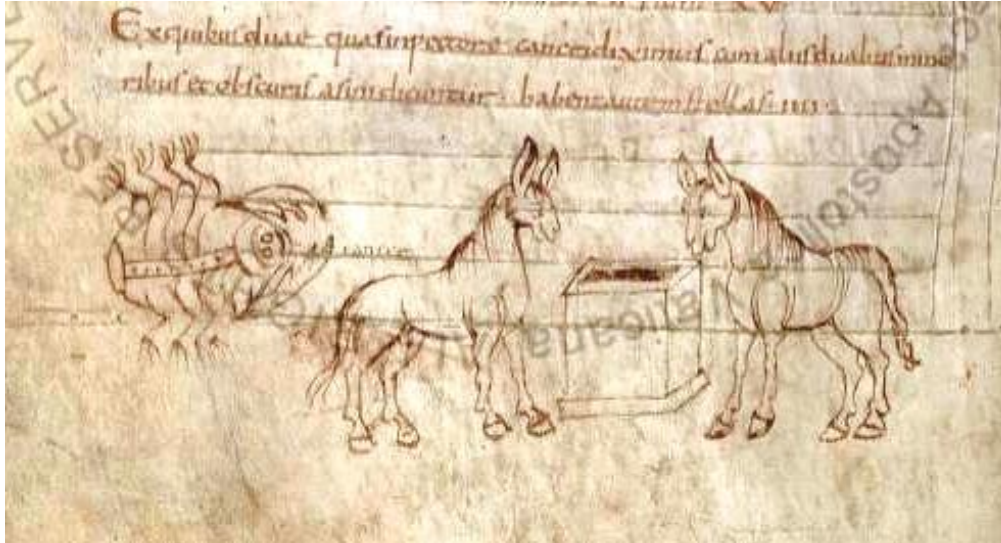 XV
Exquibus duae quas inpectore cancri diximus cum aliis duabus mino
ribus et obscuris asini dicuntur. habent autem stellas. iiii.
SERVE
Apostoli
aticana